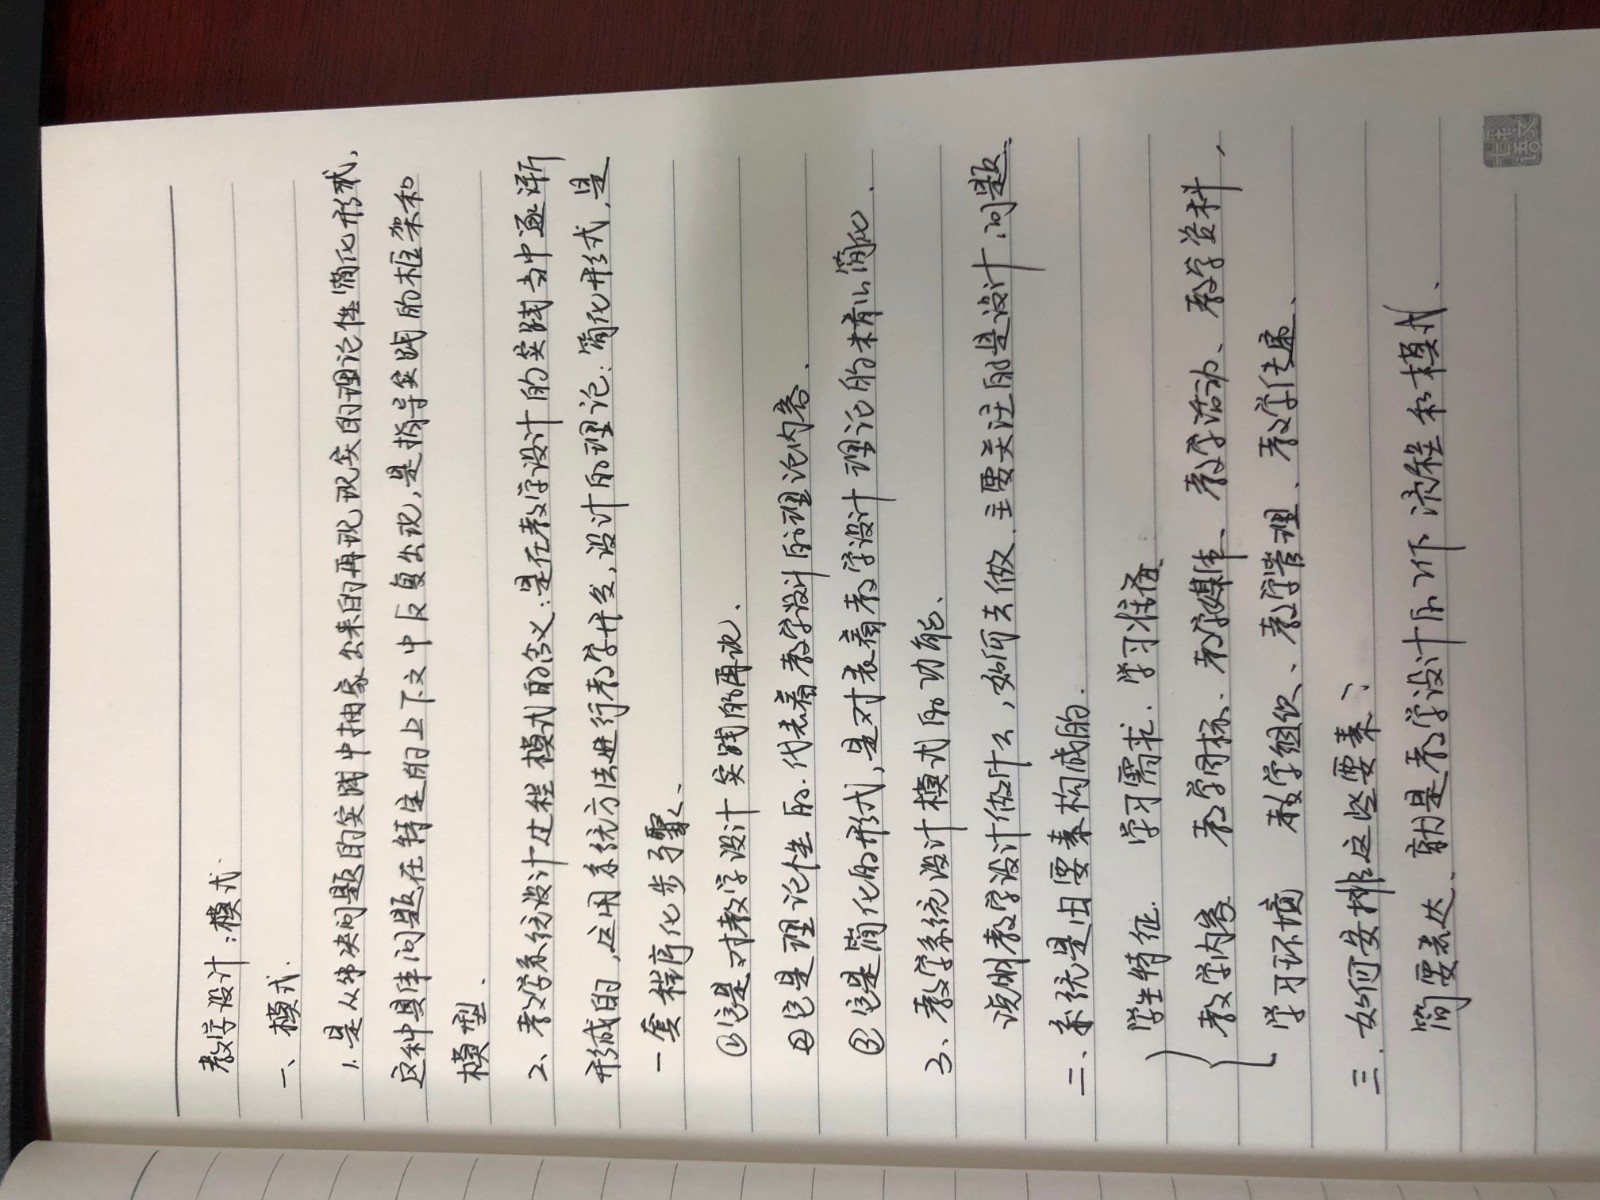 教学设计:模式.
一、模式.
1.是从解决问题的实践中抽象出来的再现现实的理论性简化形式,
这种具体问题在特定的上下文中反复出现,是指导实践的框架和
模型.
2、教学系统设计过程模式的含义:是在教学设计的实践当中逐渐
形成的,运用系统方法进行教学开发,设计的理论:简化形式,是
一套程序化步骤、
①它是对教学设计实践的再现.
②它是理论性的.代表着教学设计的理论内容.
③它是简化的形式,是对代表着教学设计理论的精心简化.
3、教学系统设计模式的功能、
说明教学设计做什么,如何去做.主要关注的是设计问题.
二、系统是由要素构成的.
学生特征. 学习需求. 学习准备
教学内容 教学目标、教学媒体、教学活动、教学资料,
学习环境 教学组织、教学管理、教学传递、
三.如何安排这些要素?
简要表达、就是教学设计的 流程和模式、
七彩语文